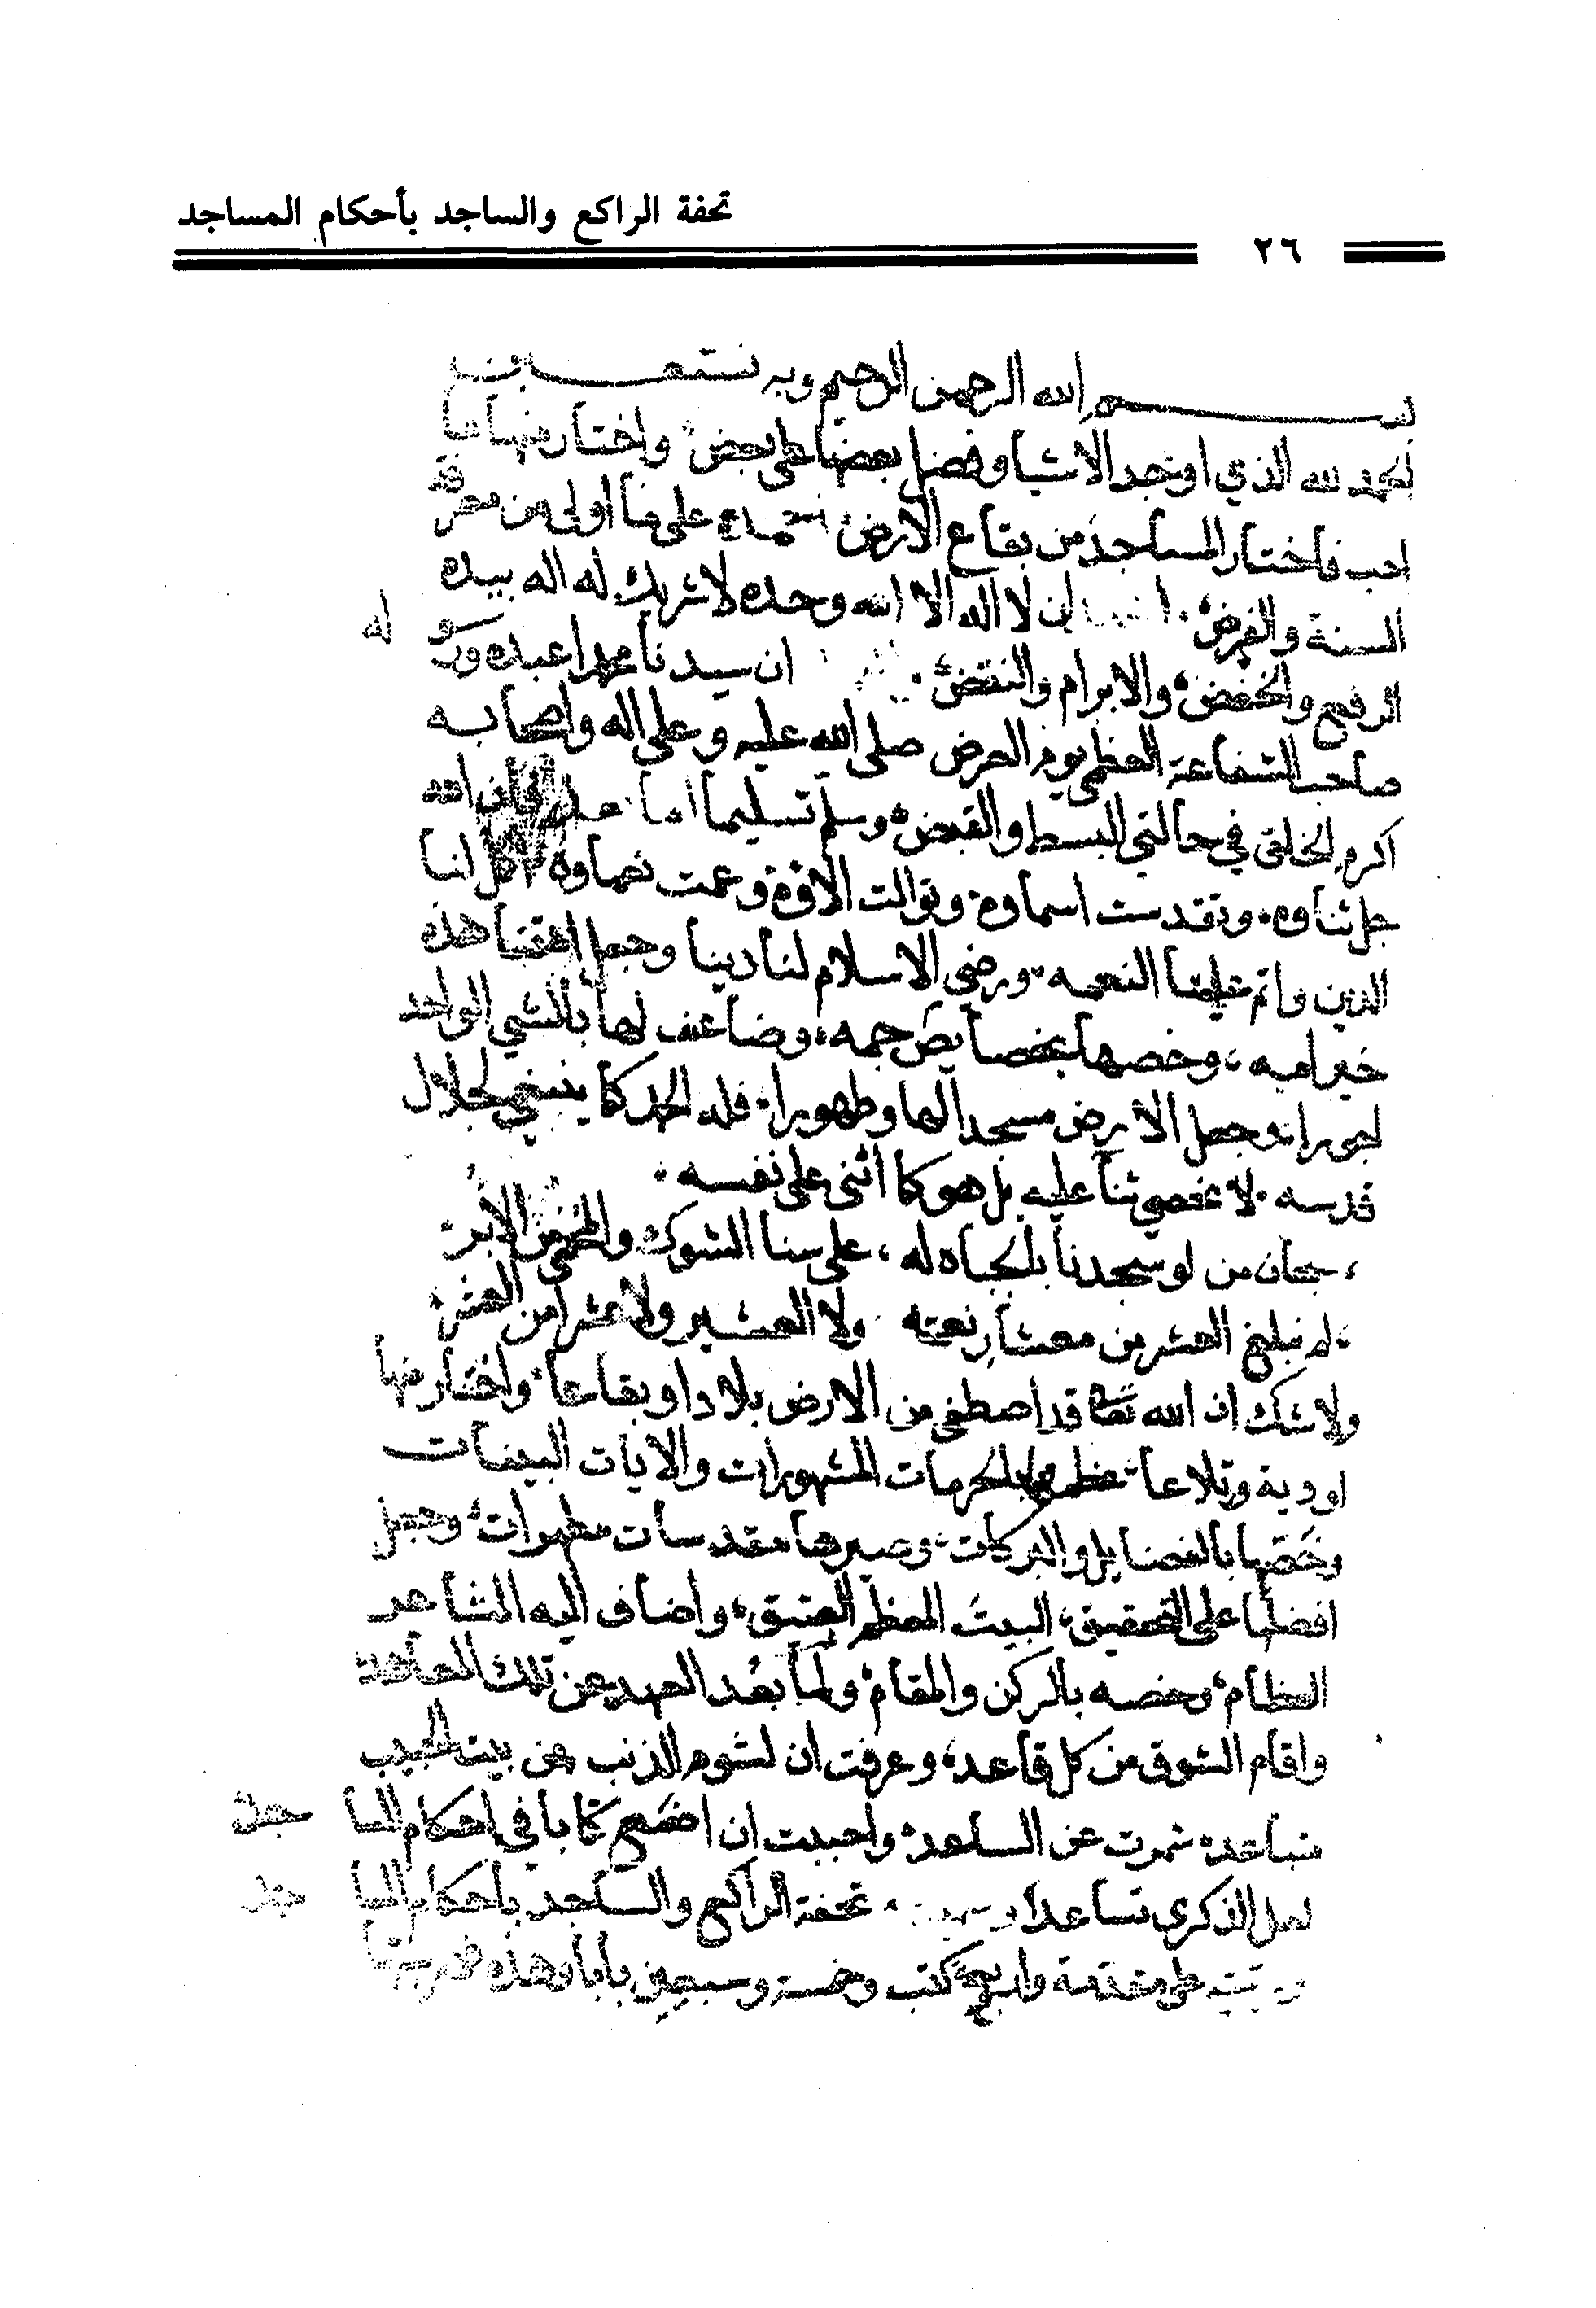 تحفة الراكع والساجد بأحكام المساجد
٢٦
بسم الله الرحمن الرحيم وبه نستعين
الحمد لله الذي اوجد الاشيا وفضل بعضها على بعض واختار منها ما
احب فاختار المساجد من بقاع الارض على ما اولى من معرفة
السنة والفرض ان لا اله الا الله وحده لا شريك له اله بيده
الرفع والخفض والابرام والنقض ان سيدنا محمدا عبده ورسو له
صاحب الشفاعة العظمى يوم العرض صلى الله عليه وعلى اله واصحابه
اكرم الخلق في حالتي البسط والقبض وسلم تسليما اما فان الله
جل ثناوه وتقدست اسماوه وتوالت الاوه وعمت نعماوه اكمل لنا
الدين واتم علينا النعمه ورضي الاسلام لنا دينا وجعل امتنا هذه
خير امه وخصها بخصايص جمه وضاعف لها بالشي الواحد
اجورا وجعل الارض مسجدا لها وطهورا فله الحمد كما ينبغي لجلال
قدسه لا نحصي ثنا عليه بل هو كما اثنى على نفسه
سبحان من لو سجدنا بالجباه له على سنا الشوك والمحمى من الابر
لم نبلغ العشر من معشار نعمته ولا العشير ولا عشرا من العشر
ولا شك ان الله تعا قد اصطفى من الارض بلادا وبقاعا واختار منها
اودية وتلاعا بالحرمات المشهورات والايات البينات
وخصها بالفضايل والبركات وصيرها مقدسات مطهرات وجعل
افضلها على التحقيق البيت المعظم العتيق واضاف اليه المشاعر
العظام وخصه بالركن والمقام ولما بعد العهد عن تلك المعاهد
واقام الشوق من كل قاعد وعرفت ان لشوم الذنب عن بيت الحبيب
مباعد شمرت عن الساعد واحببت ان اضع كتابا في احكام المسا جد
لعل الذكرى تساعد تحفة الراكع والساجد باحكام المسا جد
على مقدمة واربعة كتب وخمسة وسبعين بابا وهذه